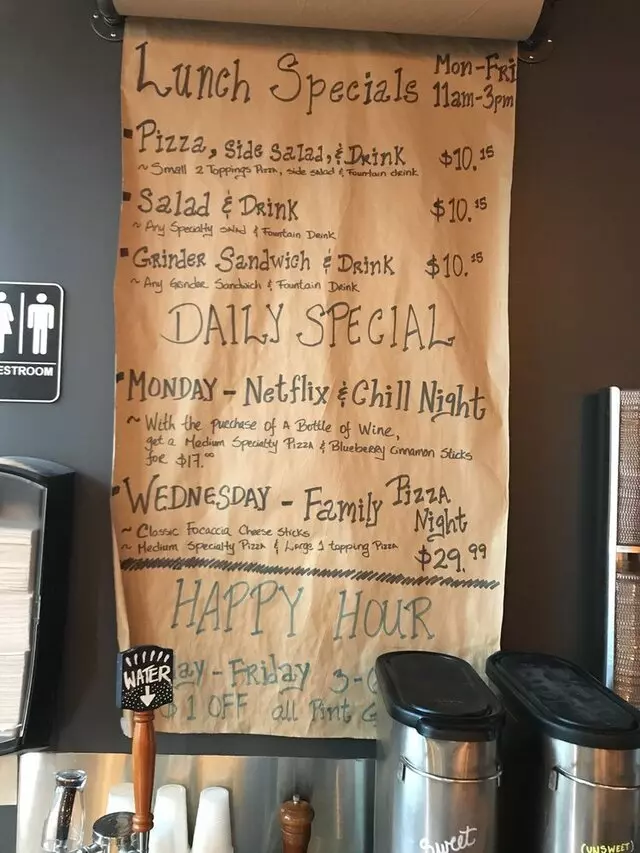 Lunch Specials
Mon-Fri
11am-3pm
Pizza, Side Salad, & Drink $10.15
~ Small 2 Toppings Pizza, side salad & Fountain drink
Salad & Drink $10.15
~ Any Specialty salad & Fountain Drink
Grinder Sandwich & Drink $10.15
~ Any Grinder Sandwich & Fountain Drink
DAILY SPECIAL
MONDAY - Netflix & Chill Night
~ With the purchase of a Bottle of Wine,
get a Medium Specialty Pizza & Blueberry Cinnamon Sticks
for $17.00
WEDNESDAY - Family Pizza
Night
~ Classic Focaccia Cheese sticks
~ Medium Specialty Pizza & Large 1 topping Pizza
$29.99
HAPPY HOUR
ay - Friday 3-
$1 OFF all Pint
ESTROOM
WATER
Sweet
(UNSWEET)